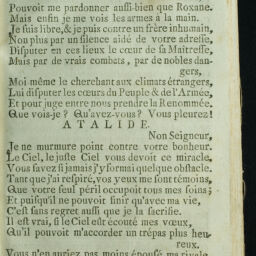 Pouvoit me pardonner aussi-bien que Roxane.
Mais enfin je me vois les armes à la main.
Je suis libre, & je puis contre un frere inhumain,
Non plus par un silence aidé de votre adresse,
Disputer en ces lieux le cœur de sa Maîtresse,
Mais par de vrais combats, par de nobles dan-
gers,
Moi même le cherchant aux climats étrangers,
Lui disputer les cœurs du Peuple & de l'Armée,
Et pour juge entre nous prendre la Renommée.
Que vois-je ? Qu'avez-vous ? Vous pleurez !
ATALIDE.
Non Seigneur,
Je ne murmure point contre votre bonheur.
Le Ciel, le juste Ciel vous devoit ce miracle.
Vous savez si jamais j'y formai quelque obstacle.
Tant que j'ai respiré, vos yeux me sont témoins,
Que votre seul péril occupoit tous mes soins;
Et puisqu'il ne pouvoit finir qu'avec ma vie,
C'est sans regret aussi que je la sacrifie.
Il est vrai, si le Ciel eût écouté mes vœux,
Qu'il pouvoit m'accorder un trépas plus heu-
reux.
Vous n'en auriez pas moins épousé ma rivale